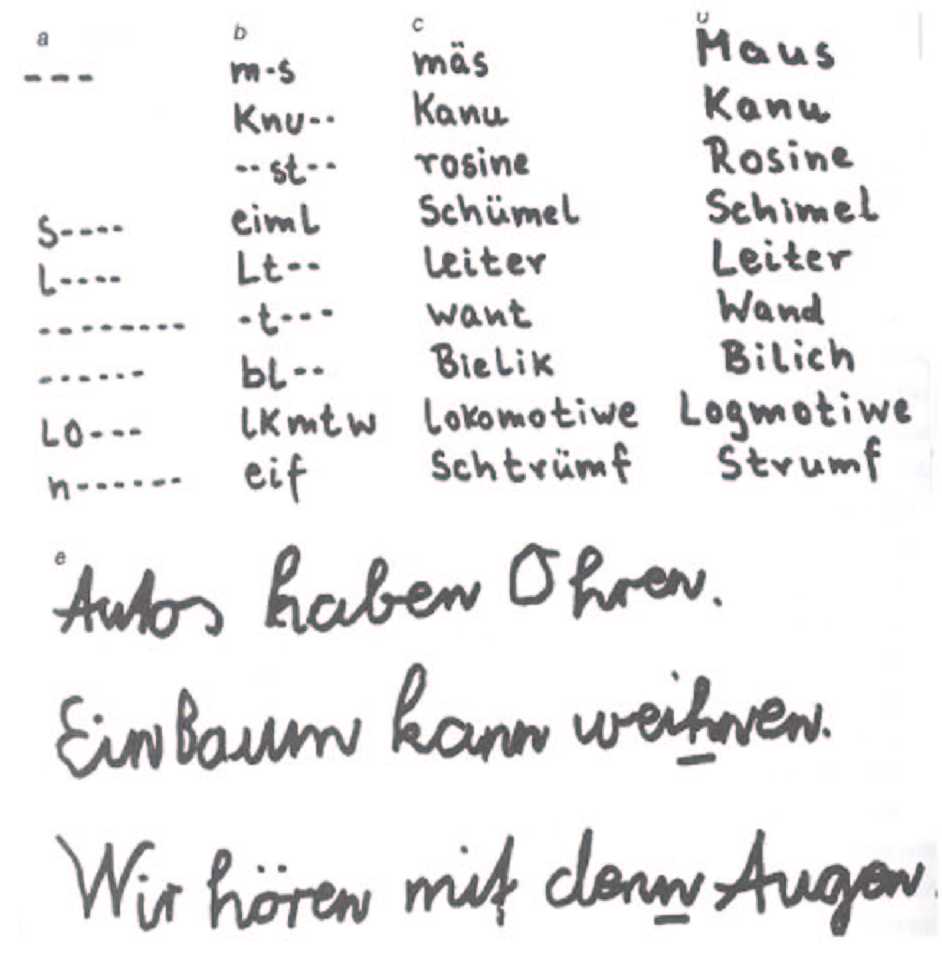 a b c d
--- m-s mäs Maus
Knu-- Kanu Kanu
--st-- rosine Rosine
s---- eiml Schümel Schimel
l---- Lt-- leiter Leiter
-------- -t--- want Wand
------ bl-- Bielik Bilich
LO--- lkmtw lokomotiwe Logmotiwe
n------ eif Schtrümf Strumf
e
Autos haben Ohren.
Ein Baum kann weihnen.
Wir hören mit denn Augen.